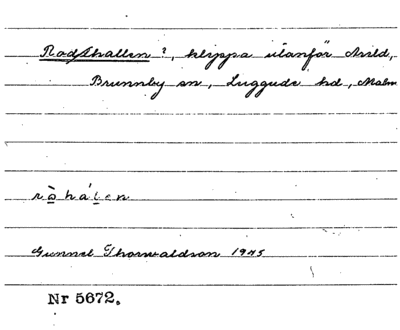 Rodshallen ?, klippa utanför Arild,
Brunnby sn, Luggude hd, Malm
rọ̀há'ḷen
Gunnel Thorwaldson 1945
Nr 5672.